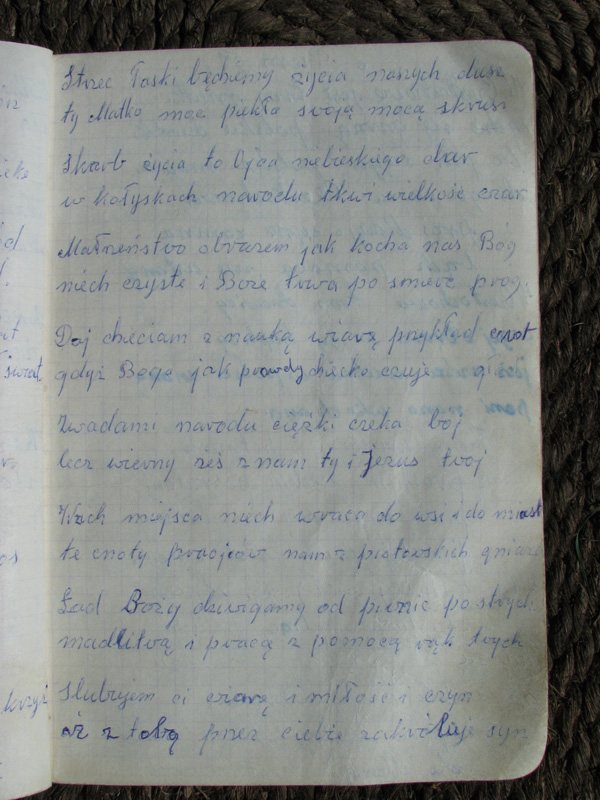 Strzec łaski będziemy życia naszych dusz
ty Matko moc piekła swoją mocą skrusz
Skarb życia to Ojca niebieskiego dar
w kołyskach narodu tkwi wielkość czar
Małżeństwo obrazem jak kocha nas Bóg
niech czyste i Boże trwa po śmierć próg
Daj dzieciom z nauką wiary przykład cnot
gdyż Boga jak prawdy dziecko czuje głód
Z wadami narodu ciężki czeka bój
lecz wierny żeś z nam ty i Jezus twój
miejsca niech wraca do wsi i do miast
te cnoty praojców nam z piastowskich gniazd
Ład Boży dźwigamy od piwnic po strych
madlitwą i pracą z pomocą rąk twych
Ślubujem ci i miłość i czyn
aż z tobą przez ciebie zakróluje syn